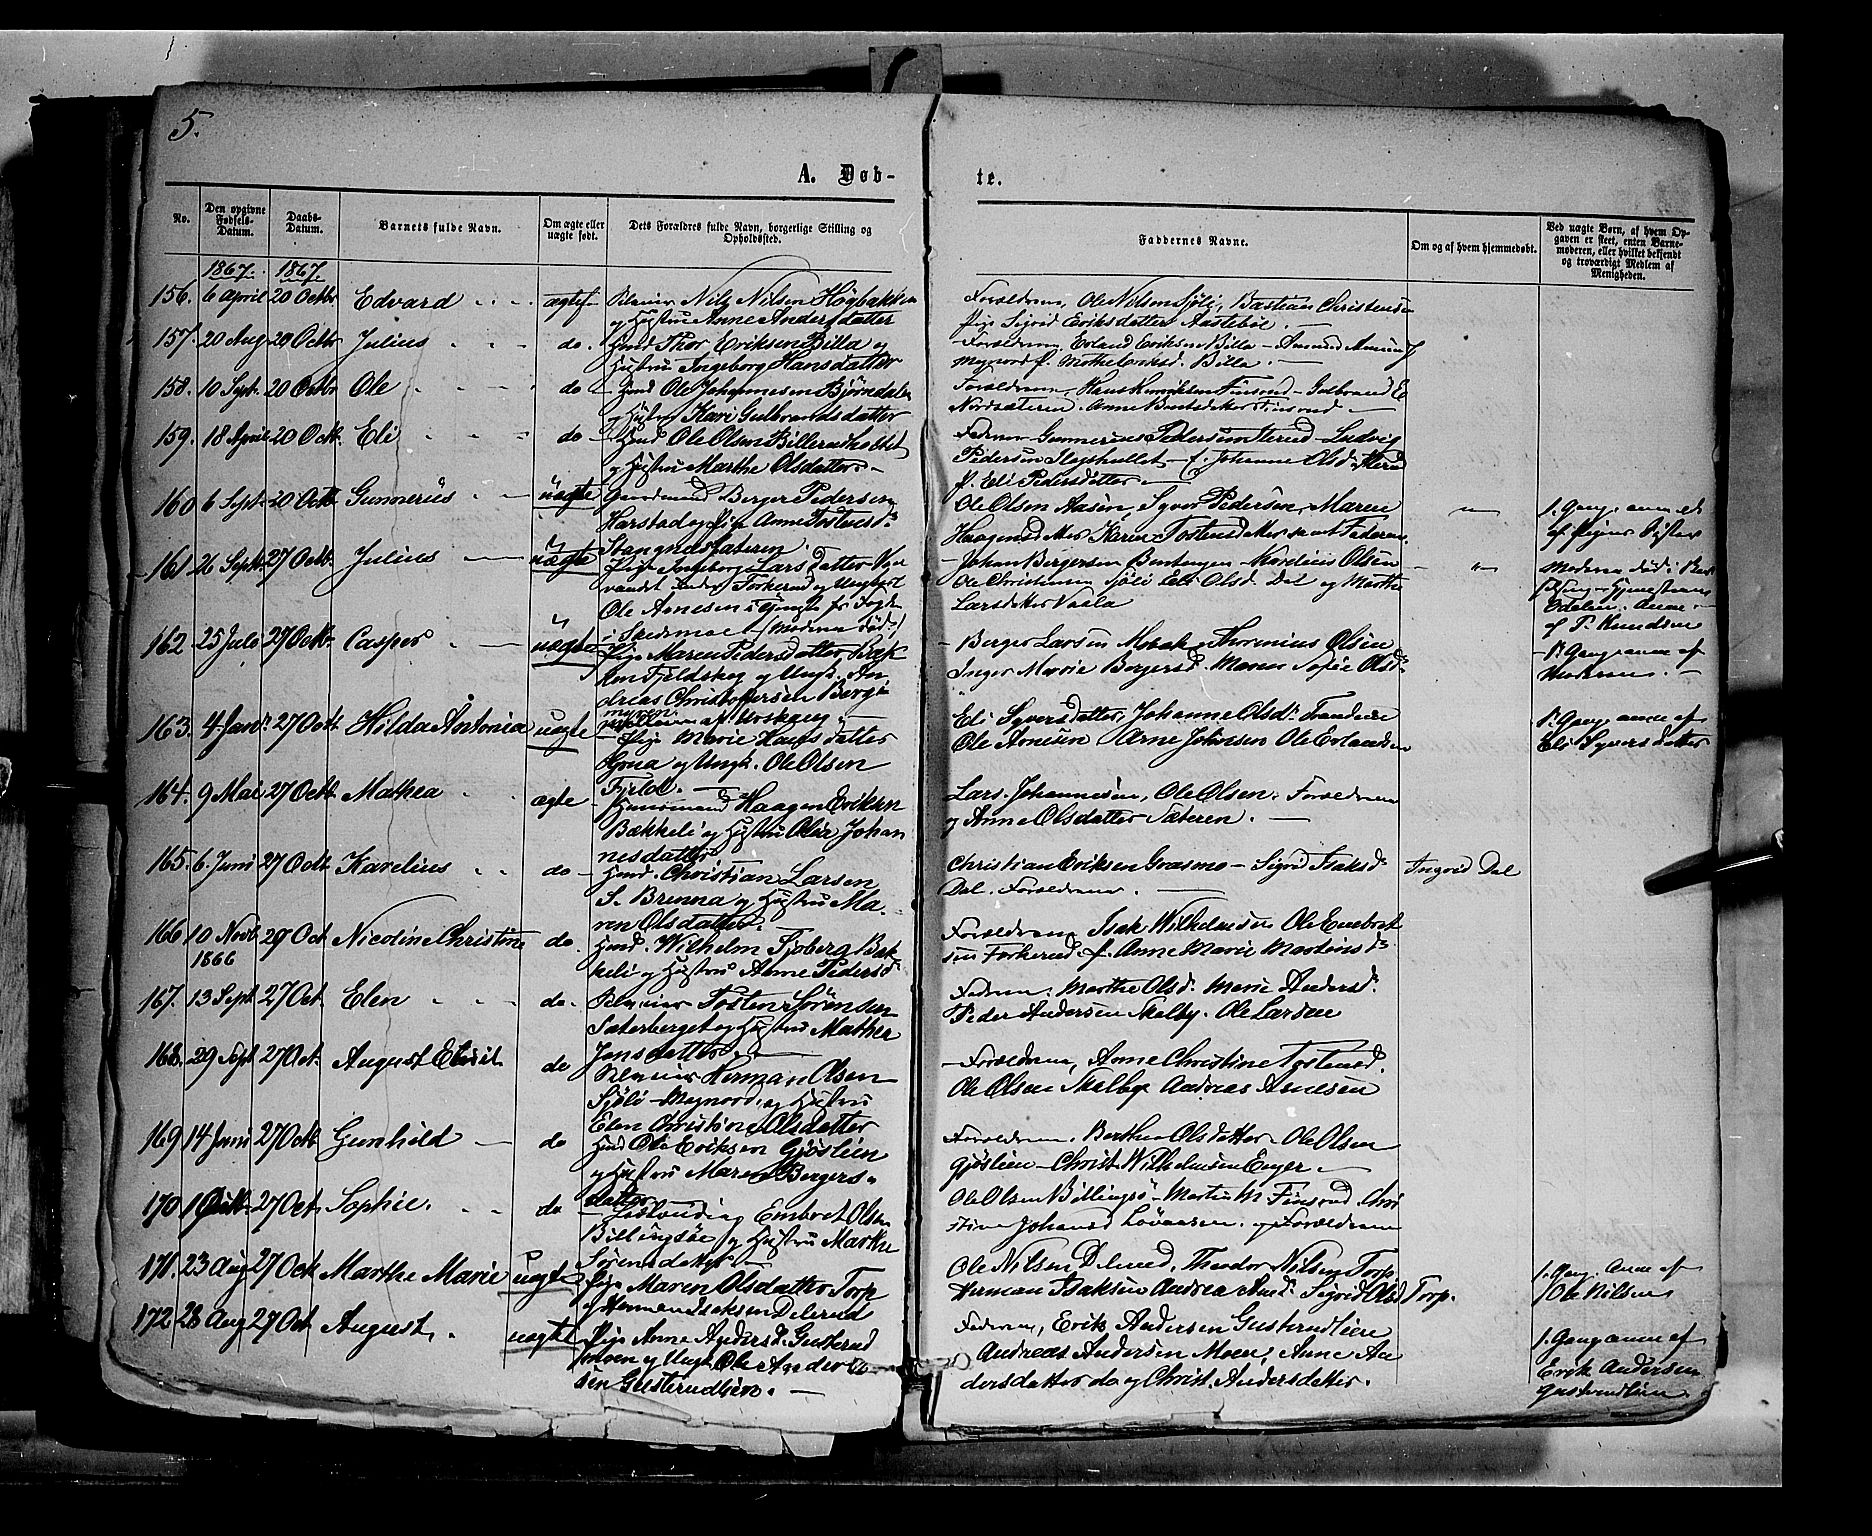 5.
A. Døb-
te.
No.
Den opgivne Fødsels-Datum.
Daabs-Datum.
Barnets fulde Navn.
Om ægte eller uægte født.
Dets Forældres fulde Navn, borgerlige Stilling og Opholdssted.
Faddernes Navne.
Om og af hvem hjemmedøbt.
Ved uægte Børn, af hvem Op-
gaven er skeet, enten Barne-
moderen, eller hvilket bekjendt
og troværdigt Medlem af
Menigheden.
1867. 1867.
156. 6 April 20 Octbr Edvard ægte Nils Nilsen Høgbakken
og Hustru Anne Andersdatter
Forældrene, Ole Nilsen Sjöli, Bastian Christensen
Pige Sigrid Eriksdatter Aastebøl
157. 20 Aug 20 Octbr Julius do. Hmd Thor Eriksen Billa og
Hustru Ingeborg Hansdatter
Forældrene, Erland Eriksen Billa - Amund
Billa.
158. 10 Sept. 20 Octbr Ole do Hmd Ole Johannesen Bjørndalen
og Hustru Kari Gulbrandsdatter
Forældrene, Hans Henriksen Finsrud - Gulbrand E
Nordsæteren. Anne Finsrud
159. 18 April 20 Oct. Eli do Hmd Ole Olsen Billerudholtet
og Hustru Marthe Olsdatter.
Faderen Gunnerius Pedersen - Ludvig
Pedersen - f. Johanne Olsd.
P. Eli Pedersdatter
160 6 Sept. 20 Octb Gunnerius uægte Gaardmand Berger Pedersen
Harstad og Pige Anne Tostensd.
Stangnessæteren.
Ole Olsen Aasen, Syver Pedersen, Maren
Haagensdatter Karen Tostensdatter samt Faderen
1. Gang, anm. et
af Pigens Søster
161 26 Sept. 27 Octb. Julius uægte Pige Ingeborg Larsdatter
Torkerud og Ungkarl
Ole Arnesen
i Skedsmoe (Moderen død.)
Johan Bergersen Karelius Olsen
Ole Christiansen Sjöli Eli Olsd. Dal og Marthe
Larsdatter Vaala
Moderen død.
af P. Knudsen
162 25 Juli 27 Octb. Casper uægte Pige Maren Pedersdatter
Fjeldskog og Ungk. An-
dreas Christoffersen
af Urskoug
Berger Larsen Thorenius Olsen
Inger Marie Bergersd. Maren Sofie Olsd.
1. Gang, anm. af
Moderen.
163. 4 Jan. 27 Octb. Hilda Antonia uægte Pige Marie Hansdatter
Grua og Ungk. Ole Olsen
Fjeld.
Eli Syversdatter, Johanne Olsd.
Ole Arnesen Arne Johnsen Ole Erlandsen
1. Gang, anm. af
Eli Syversdatter
164. 9 Mai 27 Octb. Mathea ægte Huusmand Haagen Eriksen
Bækkeli og Hustru Oliv Johan
nesdatter
Lars Johannesen, Ole Olsen. Forældrene
og Anne Olsdatter Sæteren.
165. 6. Juni 27 Octb Karelius do Hmd. Christian Larsen
S. Brenna og Hustru Ma-
ren Olsdatter.
Christian Eriksen Grasmo - Sigrid Isaksd.
Dal. Forældrene.
Ingrid Dal
166 10 Novb. 20 Oct. Nicoline Christine do. Hmd. Wilhelm Sjøberg Bæk
1866
keli og Hustru Anne Pedersd.
Forældrene Isak Wilhelmsen Ole Embret
sen Torkerud f. Anne Marie Martinsd.
167. 13 Sept. 27 Oct. Elen do. Tosten Sørensen
Sæterberget og Hustru Mathea
Jonsdatter.
Faderen. Marthe Olsd. Marie Andersd.
Peder Andersen Skalby. Ole Larsen
168. 29 Sept 27 Oct. August Edvin do Herman Olsen
Sjöli - og Hustru
Elen Christine Olsdatter
Forældrene, Anne Christine Tostensd.
Ole Olsen Skalby Andreas Arnesen
169 14 Juni 27 Octb Gunhild do Hmd Ole Eriksen Gjøslien
og Hustru Maren Bergers-
datter
Forældrene. Berthe Olsdatter. Ole Olsen
Gjøslien - Christ. Wilhelmsen Enger
170 27 Oct. Sophie. do Embret Olsen
Billingsøe og Hustru Marthe
Sørensdatter
Ole Olsen Billingsø - Martin M Finsrud. Chri
stine Johansd. Løvaasen. og Forældrene
171. 23 Aug 27 Oct. Marthe Marie uægte Pige Maren Olsdatter Torp
og Herman Isaksen Delerud
Ole Nilsen Delerud, Theodor Nilsen Torp
Herman Isaksen Andrea Amd. Sigrid Olsd Torp.
1. Gang. Anm. af
Ole Nilsen
172 28 Aug 27 Oct August uægte Pige Anne Andersd. Gusterud
og Ungk. Ole Ander
sen Gusterudlien.
Faderen, Erik Andersen Gusterudlien
Andreas Andersen Moen, Anne An
dersdatter do og Christ. Andersdatter.
1. Gang anm. af
Erik Andersen
Gusterudlien.